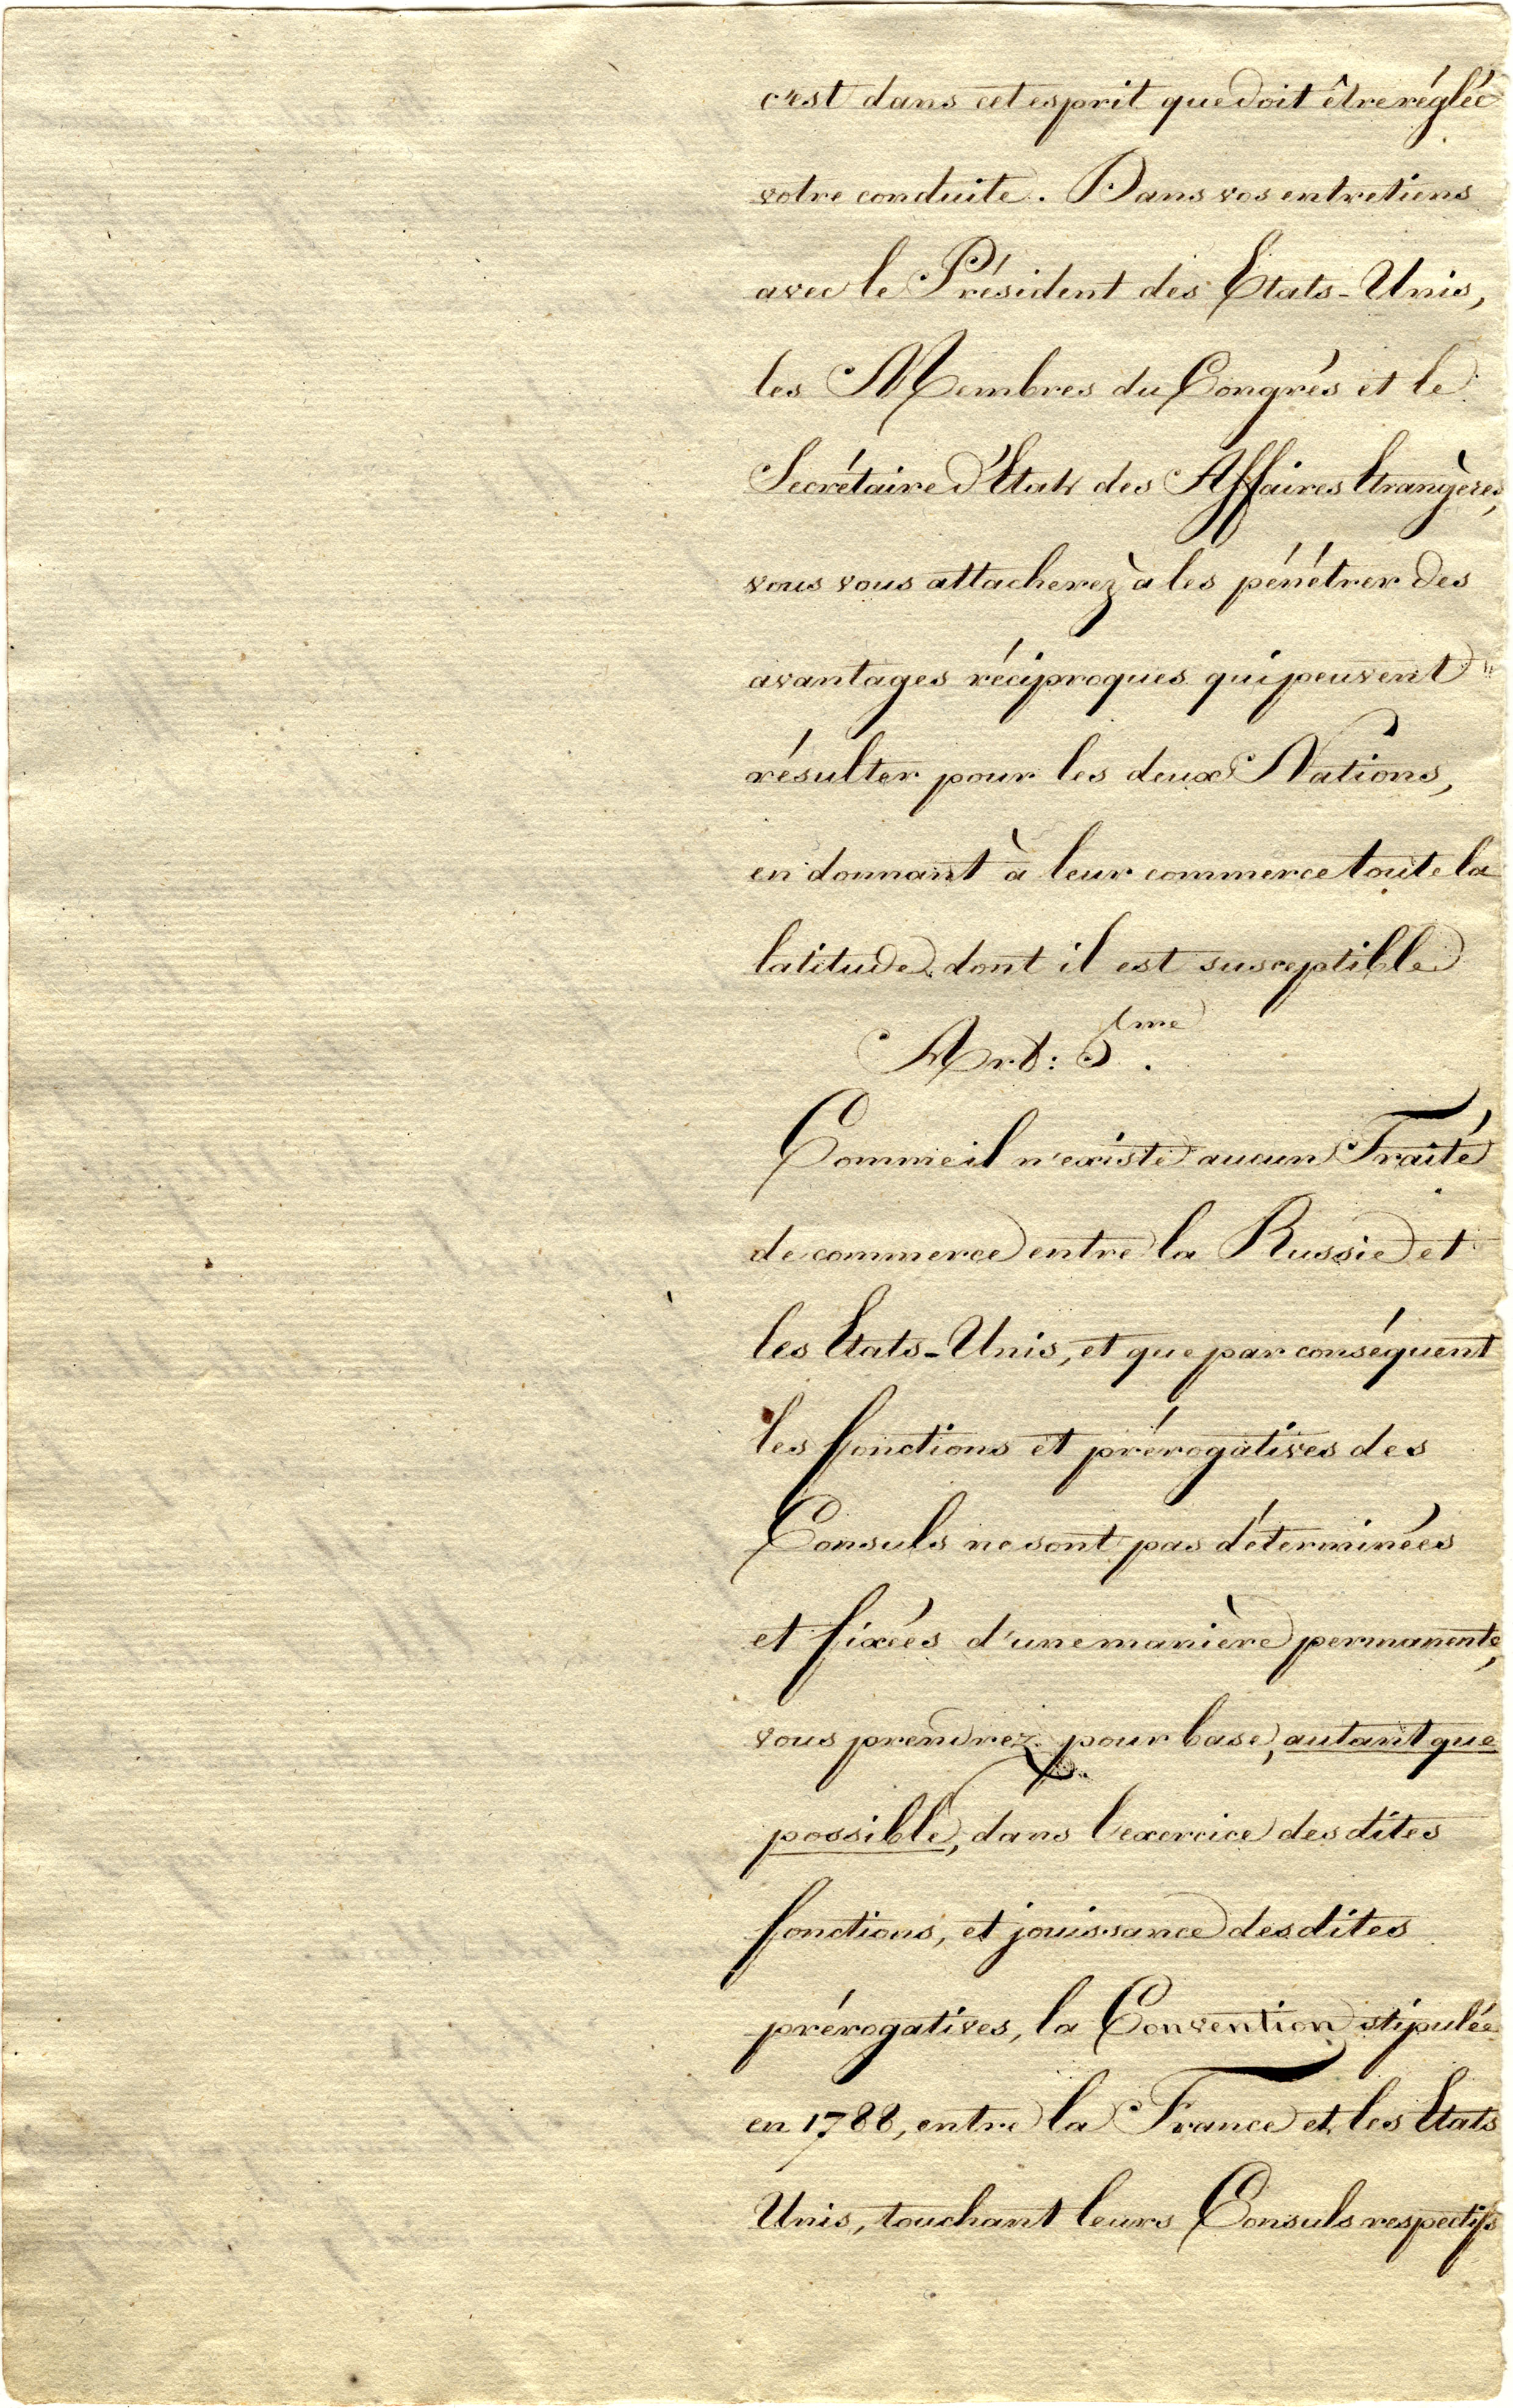 c'est dans cet esprit que doit être réglée
votre conduite. Dans vos entretiens
avec le Président des Etats-Unis,
les Membres du Congrés et le
Secrétaire d'Etat des Affaires Etrangères,
vous vous attacherez à les pénétrer des
avantages réciproques qui peuvent
résulter pour les deux Nations,
en donnant à leur commerce toute la
latitude dont il est susceptible
Art: 5me.
Comme il n'existe aucun Traité
de commerce entre la Russie et
les Etats-Unis, et que par conséquent
les fonctions et prérogatives des
Consuls ne sont pas déterminées
et fixées d'une manière permanente,
vous prendrez pour base, autant que
possible, dans l'exercice des dites
fonctions, et jouissance des dites
prérogatives, la Convention stipulée
en 1788, entre la France et les Etats
Unis, touchant leurs Consuls respectifs